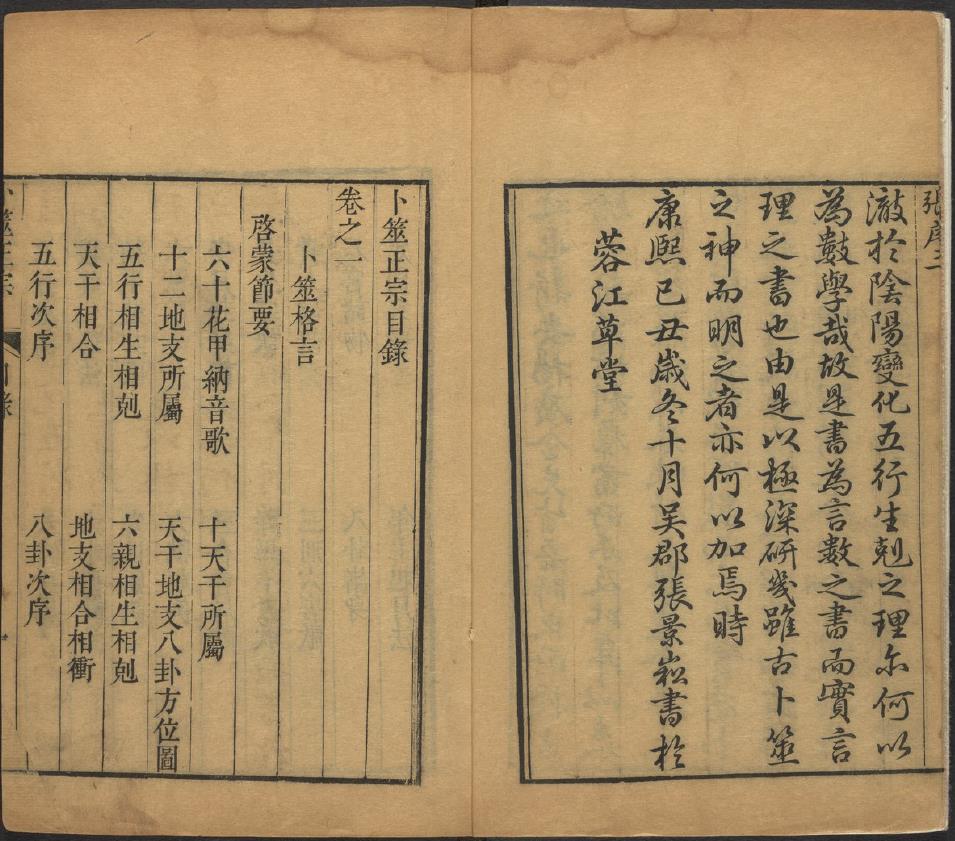 張序二
澈於陰陽變化五行生剋之理亦何以
為數學哉故是書為言數之書而實言
理之書也由是以極深研幾雖古卜筮
之神而明之者亦何以加焉時
康熙己丑歲冬十月吳郡張景崧書於
蓉江草堂
卜筮正宗目錄
卷之一
卜筮格言
啓蒙節要
六十花甲納音歌 十天干所屬
十二地支所屬 天干地支八卦方位圖
五行相生相剋 六親相生相剋
天干相合 地支相合相衝
五行次序 八卦次序
卜筮正宗 目錄